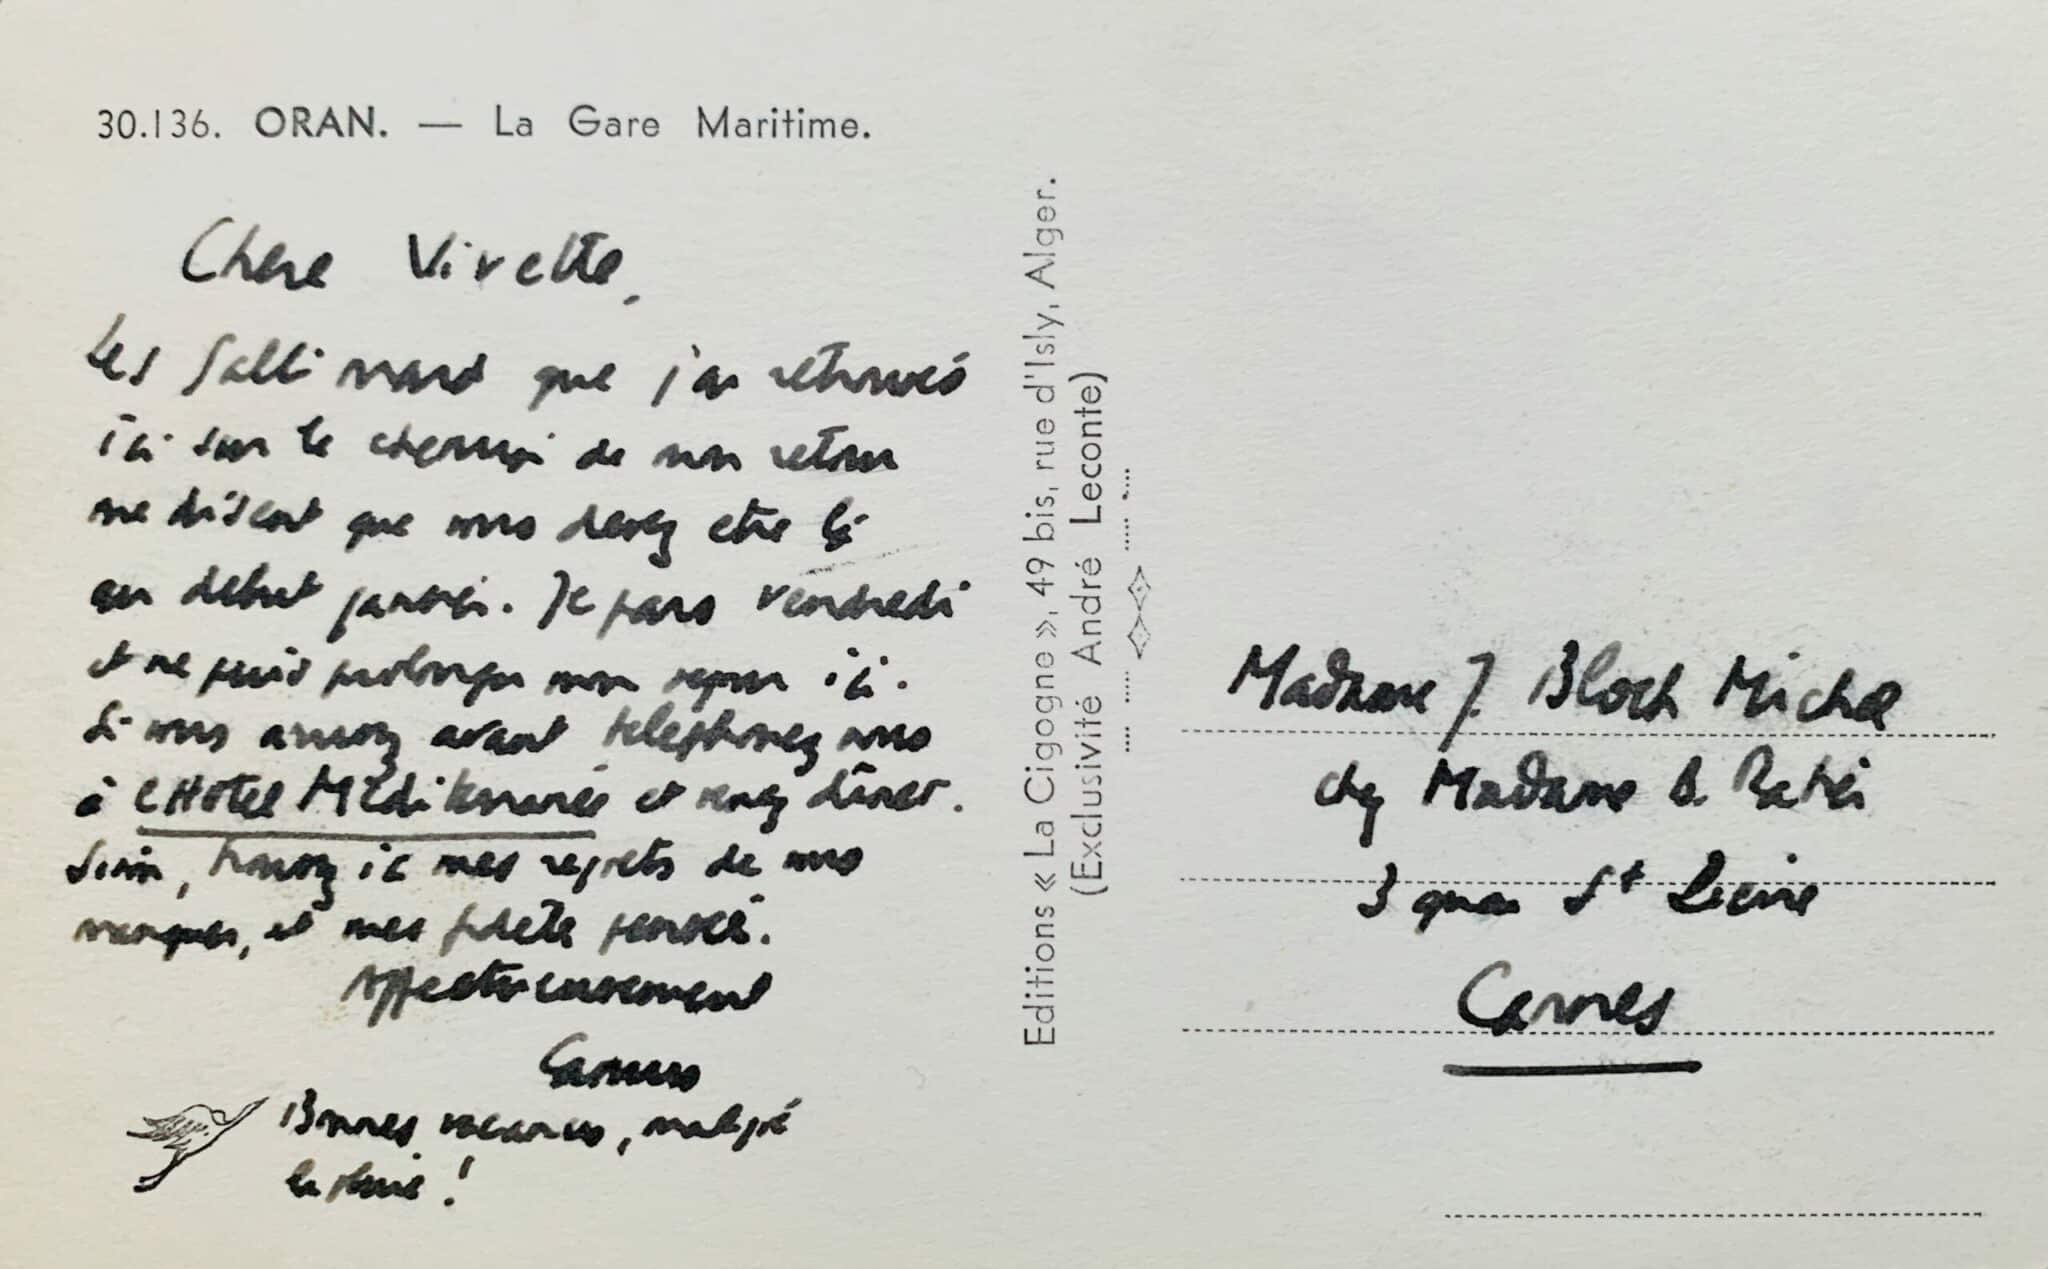 30.136. ORAN. — La Gare Maritime.
Chère Vivette,
Les Gallimard que j'ai retrouvés
ici sur le chemin de mon retour
me disent que vous devez être là
au début janvier. Je pars vendredi
et ne puis prolonger mon séjour ici.
Si vous arrivez avant téléphonez nous
à l'Hôtel Méditerranée et venez dîner.
Sinon, trouvez ici mes regrets de vous
manquer, et mes pensées.
Affectueusement
Camus
Bonnes vacances, malgré
la pluie !
Editions « La Cigogne », 49 bis, rue d'Isly, Alger.
(Exclusivité André Leconte)
Madame J. Bloch Michel
chez Madame
3 quai St Pierre
Cannes